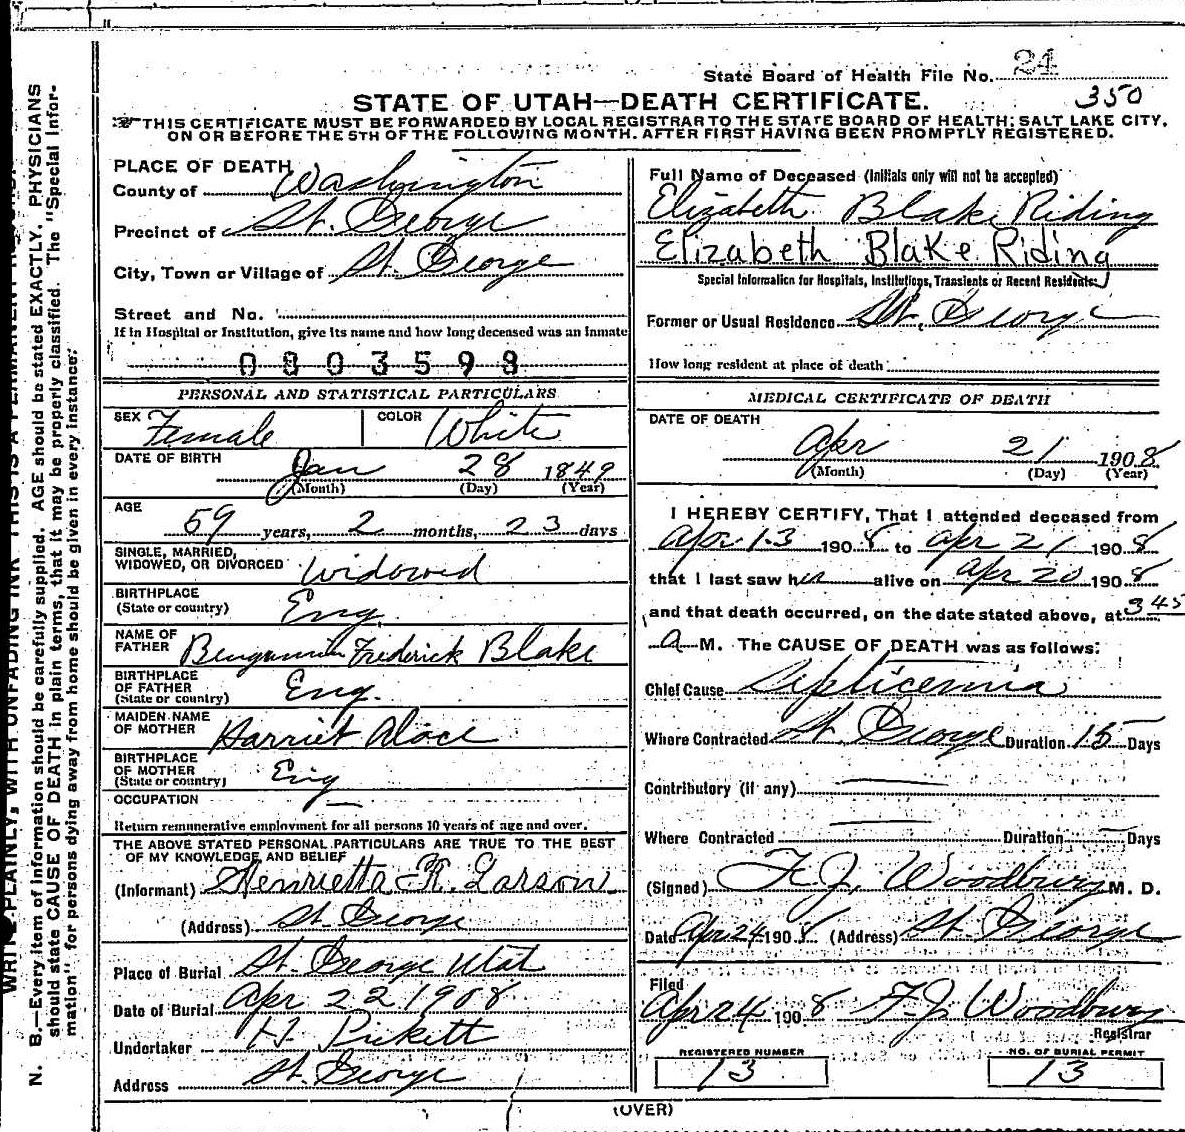 State Board of Health File No. 24
350
STATE OF UTAH—DEATH CERTIFICATE.
THIS CERTIFICATE MUST BE FORWARDED BY LOCAL REGISTRAR TO THE STATE BOARD OF HEALTH; SALT LAKE CITY,
ON OR BEFORE THE 5TH OF THE FOLLOWING MONTH. AFTER FIRST HAVING BEEN PROMPTLY REGISTERED.
PLACE OF DEATH
County of Washington
Precinct of St. George
City, Town or Village of St. George
Street and No.
If in Hospital or Institution, give its name and how long deceased was an inmate
0803598
PERSONAL AND STATISTICAL PARTICULARS
SEX Female COLOR White
DATE OF BIRTH Jan 28 1849
(Month) (Day) (Year)
AGE
59 years, 2 months, 23 days
SINGLE, MARRIED,
WIDOWED, OR DIVORCED Widowed
BIRTHPLACE
(State or country) Eng.
NAME OF
FATHER Benjamin Frederick Blake
BIRTHPLACE
OF FATHER Eng.
(State or country)
MAIDEN NAME
OF MOTHER Harriet
BIRTHPLACE
OF MOTHER Eng
(State or country)
OCCUPATION —
Return remunerative employment for all persons 10 years of age and over.
THE ABOVE STATED PERSONAL PARTICULARS ARE TRUE TO THE BEST
OF MY KNOWLEDGE AND BELIEF
(Informant) Henrietta R. Larson
(Address) St. George
Place of Burial St. George Utah
Date of Burial Apr 22 1908
Undertaker Pickett
Address St. George
Full Name of Deceased (Initials only will not be accepted)
Elizabeth Blake Riding
Elizabeth Blake Riding
Special Information for Hospitals, Institutions, Transients or Recent Residents:
Former or Usual Residence St. George
How long resident at place of death
MEDICAL CERTIFICATE OF DEATH
DATE OF DEATH
Apr 21 1908
(Month) (Day) (Year)
I HEREBY CERTIFY, That I attended deceased from
Apr 13 1908 to Apr 21 1908
that I last saw her alive on Apr 20 1908
and that death occurred, on the date stated above, at 3 45
a M. The CAUSE OF DEATH was as follows:
Chief Cause Septicemia
Where Contracted St. George Duration 15 Days
Contributory (if any) —
Where Contracted — Duration — Days
(Signed) F. J. Woodbury M. D.
Date Apr 24 1908 (Address) St. George
Filed
Apr 24 1908 F. J. Woodbury
Registrar
REGISTERED NUMBER
13
NO. OF BURIAL PERMIT
13
(OVER)
N. B.—Every item of information should be carefully supplied. AGE should be stated EXACTLY. PHYSICIANS
should state CAUSE OF DEATH in plain terms, that it may be properly classified. The "Special Infor-
mation" for persons dying away from home should be given in every instance.
PLAINLY, WITH UNFADING INK THIS IS A PERMANENT